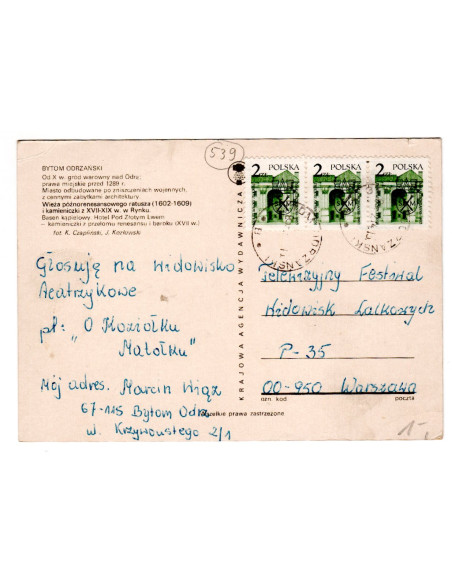 539
BYTOM ODRZAŃSKI
Od X w. gród warowny nad Odrą;
prawa miejskie przed 1289 r.
Miasto odbudowane po zniszczeniach wojennych,
z cennymi zabytkami architektury
Wieża późnorenesansowego ratusza (1602-1609)
i kamieniczki z XVII-XIX w. w Rynku.
Basen kąpielowy. Hotel Pod Złotym Lwem
– kamieniczki z przełomu renesansu i baroku (XVII w.)
fot. K. Czapiński, J. Kozłowski
Głosują na widowisko
teatrzykowe
pt: "O Koziołku
Matołku"
Mój adres. Marcin Wiąz
67-115 Bytom Odrz.
w. Krzywoustego 2/1
KRAJOWA AGENCJA WYDAWNICZA
2 ZŁ POLSKA
2 ZŁ POLSKA
2 ZŁ POLSKA
Telewizyjny Festiwal
Widowisk Lalkowych
P-35
00-950 Warszawa
ozn. kod poczta
wszelkie prawa zastrzeżone
1-,